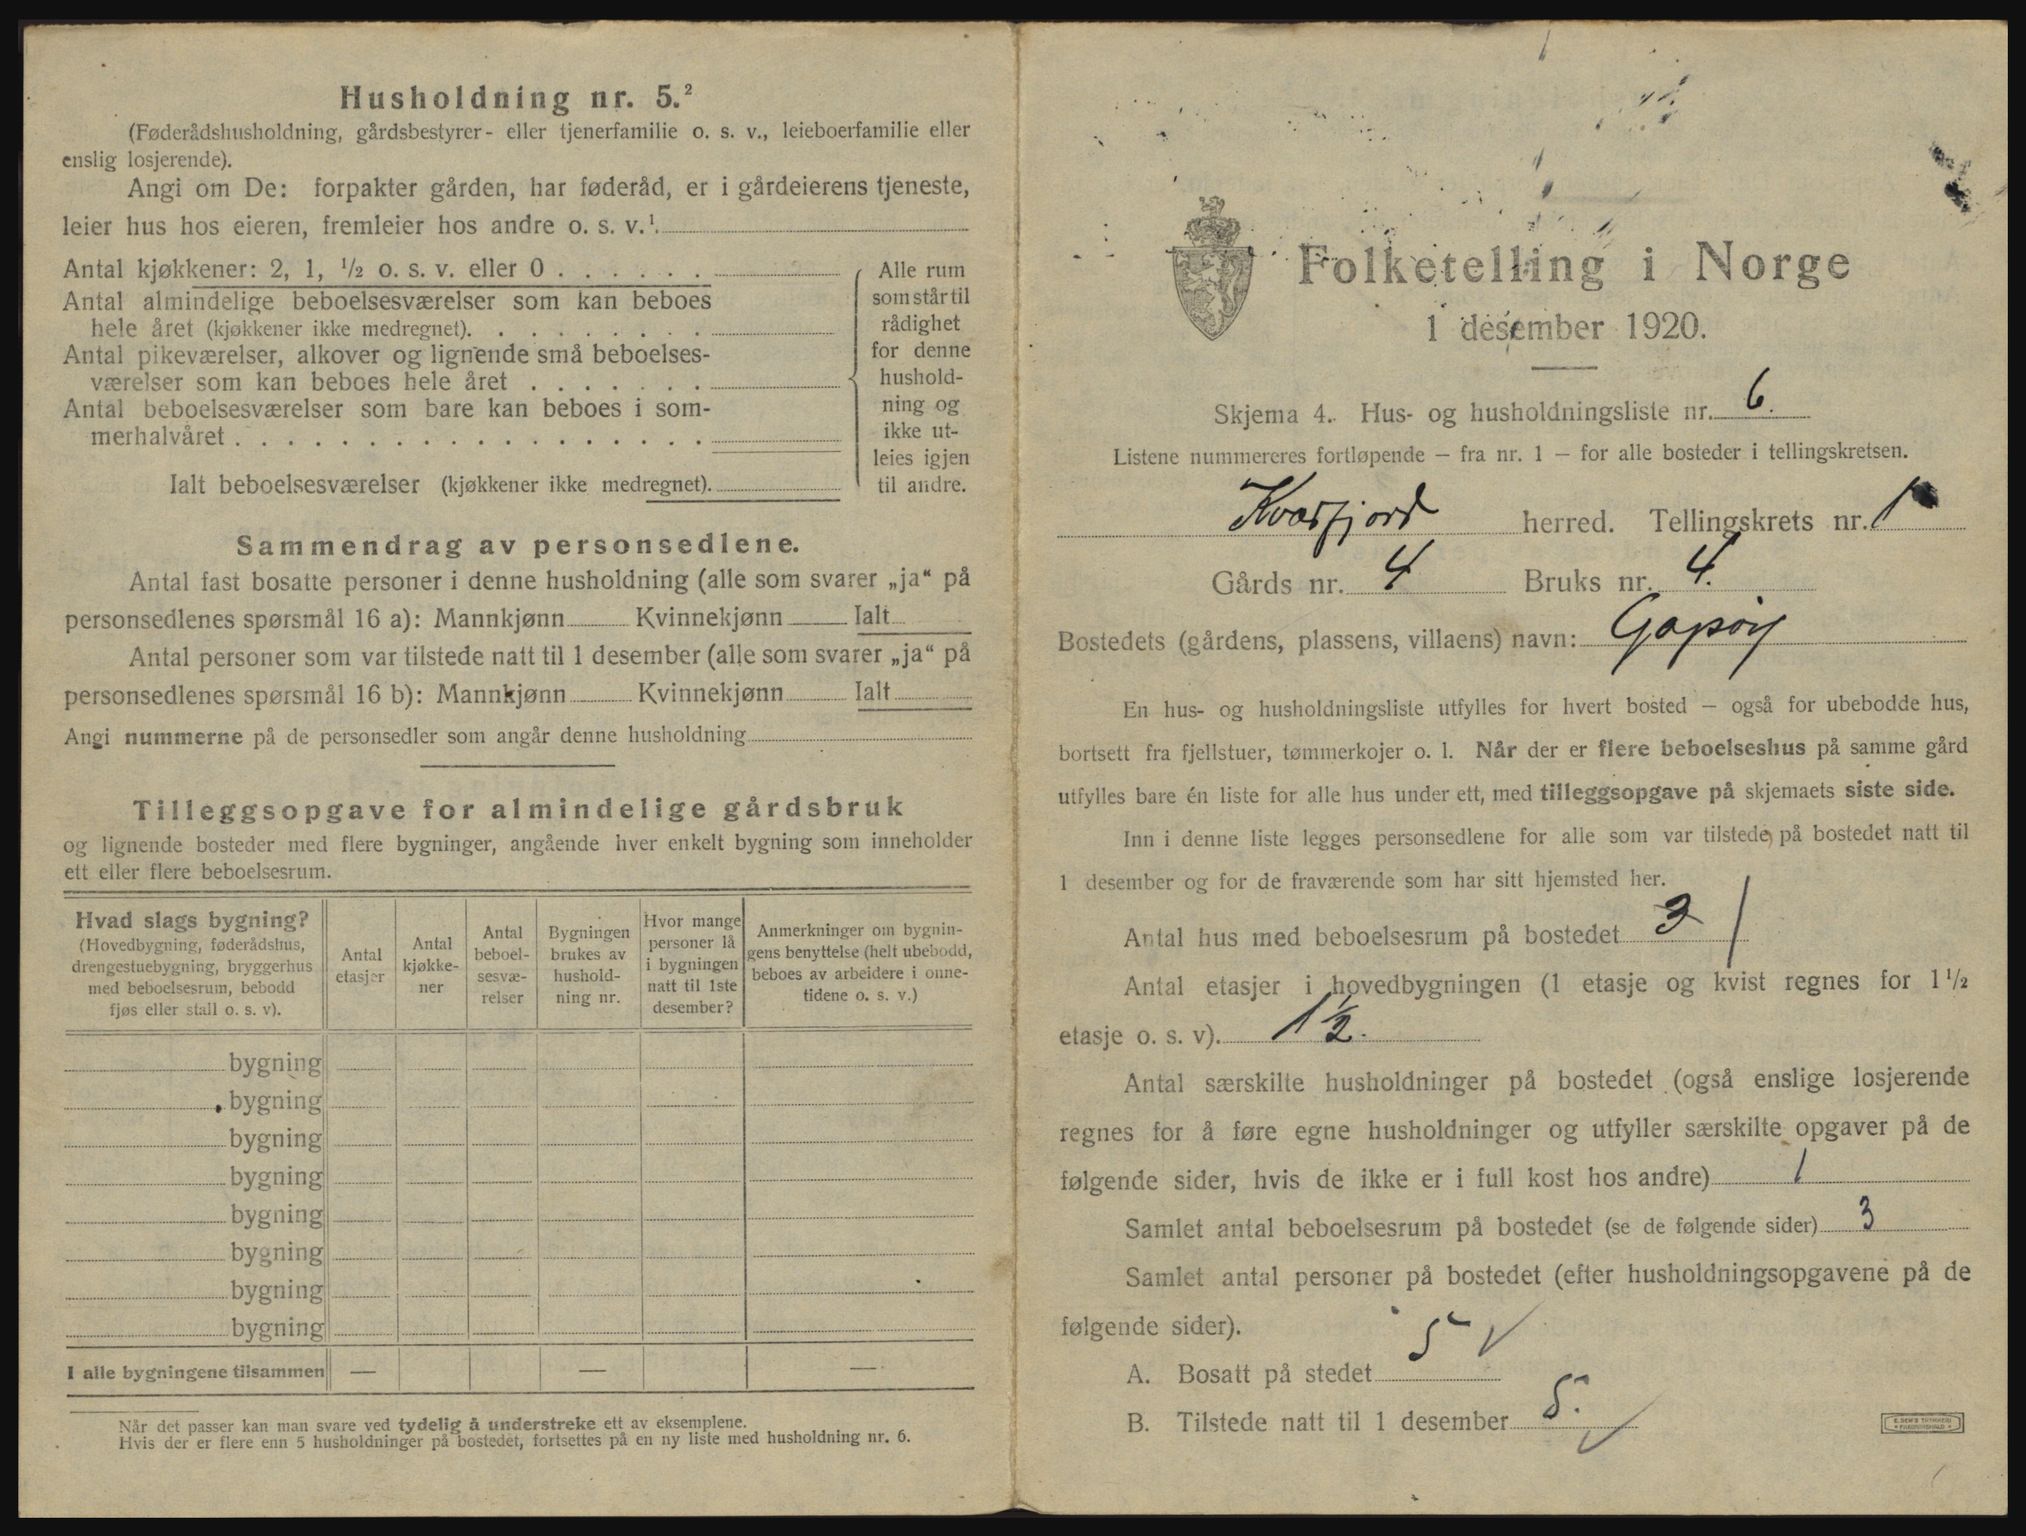 Husholdning nr. 5.²
(Føderådshusholdning, gårdsbestyrer- eller tjenerfamilie o. s. v., leieboerfamilie eller
enslig losjerende).
Angi om De: forpakter gården, har føderåd, er i gårdeierens tjeneste,
leier hus hos eieren, fremleier hos andre o. s. v.¹.
Antal kjøkkener: 2, 1, ½ o. s. v. eller 0 . . . . . .
Antal almindelige beboelsesværelser som kan beboes
hele året (kjøkkener ikke medregnet). . . . . . . . .
Antal pikeværelser, alkover og lignende små beboelses-
værelser som kan beboes hele året . . . . . . .
Antal beboelsesværelser som bare kan beboes i som-
merhalvåret . . . . . . . . . . . . . . . . . .
Ialt beboelsesværelser (kjøkkener ikke medregnet).
Alle rum
som står til
rådighet
for denne
hushold-
ning og
ikke ut-
leies igjen
til andre.
Sammendrag av personsedlene.
Antal fast bosatte personer i denne husholdning (alle som svarer „ja“ på
personsedlenes spørsmål 16 a): Mannkjønn Kvinnekjønn Ialt
Antal personer som var tilstede natt til 1 desember (alle som svarer „ja“ på
personsedlenes spørsmål 16 b): Mannkjønn Kvinnekjønn Ialt
Angi nummerne på de personsedler som angår denne husholdning
Tilleggsopgave for almindelige gårdsbruk
og lignende bosteder med flere bygninger, angående hver enkelt bygning som inneholder
ett eller flere beboelsesrum.
Hvad slags bygning?
(Hovedbygning, føderådshus,
drengestuebygning, bryggerhus
med beboelsesrum, bebodd
fjøs eller stall o. s. v).
Antal
etasjer
Antal
kjøkke-
ner
Antal
beboel-
sesvæ-
relser
Bygningen
brukes av
hushold-
ning nr.
Hvor mange
personer lå
i bygningen
natt til 1ste
desember?
Anmerkninger om bygnin-
gens benyttelse (helt ubebodd,
beboes av arbeidere i onne-
tidene o. s. v.)
bygning
bygning
bygning
bygning
bygning
bygning
bygning
bygning
I alle bygningene tilsammen — — —
Når det passer kan man svare ved tydelig å understreke ett av eksemplene.
Hvis der er flere enn 5 husholdninger på bostedet, fortsettes på en ny liste med husholdning nr. 6.
Folketelling i Norge
1 desember 1920.
Skjema 4. Hus- og husholdningsliste nr. 6.
Listene nummereres fortløpende — fra nr. 1 — for alle bosteder i tellingskretsen.
Kvæfjord herred. Tellingskrets nr. 1
Gårds nr. 4 Bruks nr. 4.
Bostedets (gårdens, plassens, villaens) navn: Gapøy
En hus- og husholdningsliste utfylles for hvert bosted — også for ubebodde hus,
bortsett fra fjellstuer, tømmerkojer o. l. Når der er flere beboelseshus på samme gård
utfylles bare én liste for alle hus under ett, med tilleggsopgave på skjemaets siste side.
Inn i denne liste legges personsedlene for alle som var tilstede på bostedet natt til
1 desember og for de fraværende som har sitt hjemsted her.
Antal hus med beboelsesrum på bostedet 1
Antal etasjer i hovedbygningen (1 etasje og kvist regnes for 1½
etasje o. s. v). 1½.
Antal særskilte husholdninger på bostedet (også enslige losjerende
regnes for å føre egne husholdninger og utfyller særskilte opgaver på de
følgende sider, hvis de ikke er i full kost hos andre) 1
Samlet antal beboelsesrum på bostedet (se de følgende sider) 3
Samlet antal personer på bostedet (efter husholdningsopgavene på de
følgende sider).
A. Bosatt på stedet 5
B. Tilstede natt til 1 desember 5.